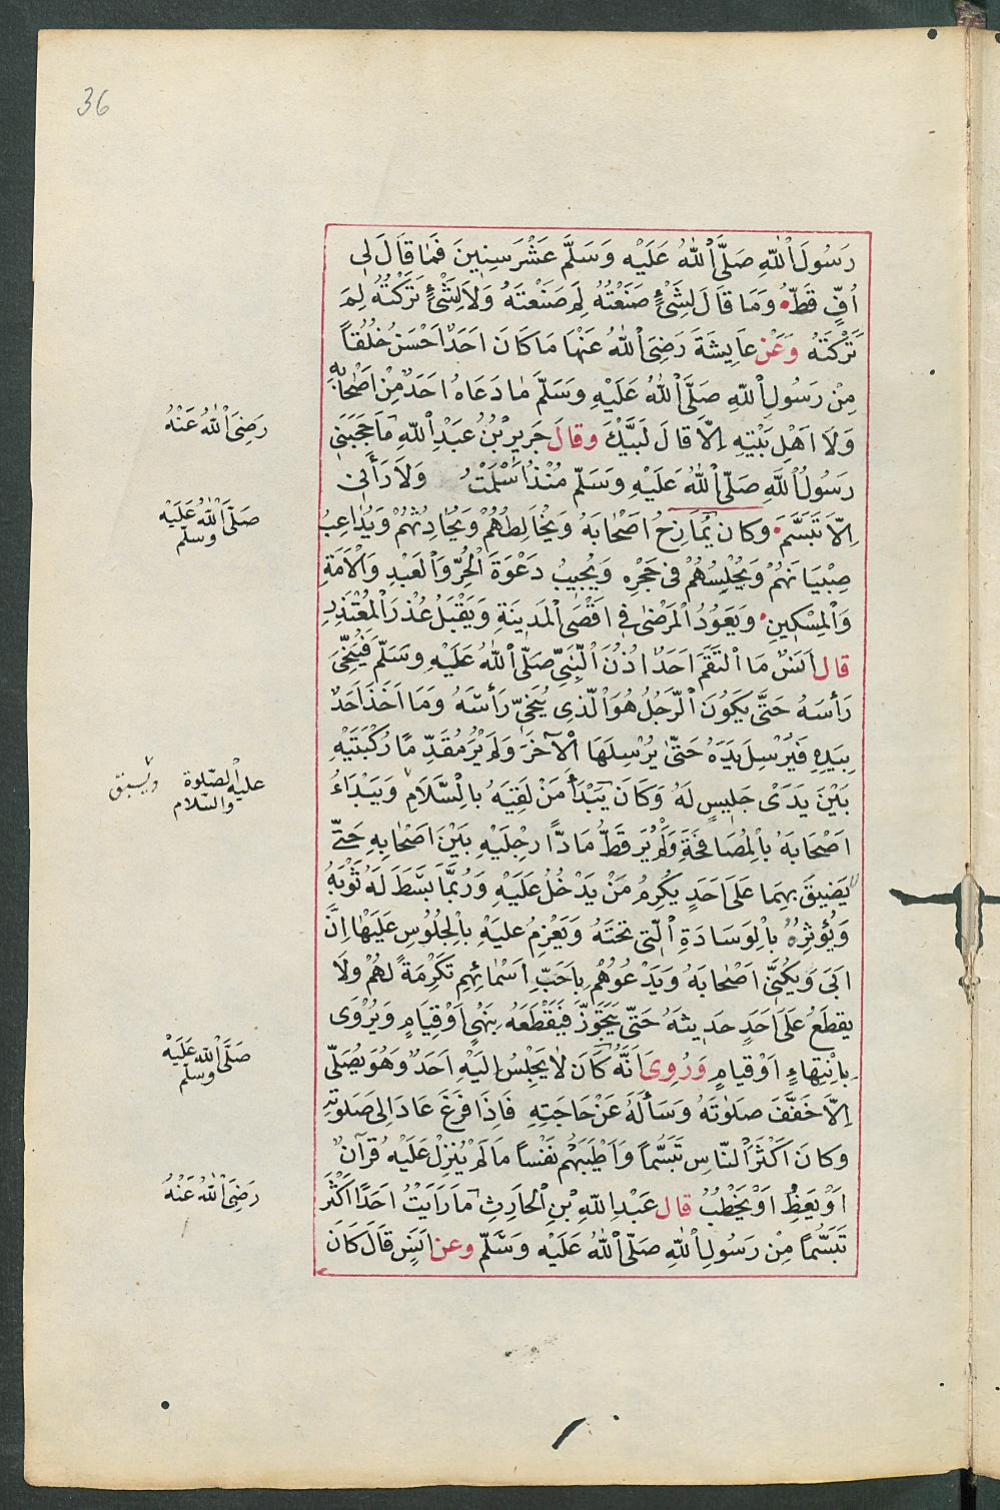 36
رَسُولَ اللّٰهِ صَلَّى اللّٰهُ عَلَيْهِ وَسَلَّمَ عَشْرَ سِنِينَ فَمَا قَالَ لِى
اُفٍّ قَطُّ وَمَا قَالَ لِشَىْءٍ صَنَعْتُهُ لِمَ صَنَعْتَهُ وَلَا لِشَىْءٍ تَرَكْتُهُ لِمَ
تَرَكْتَهُ وَعَنْ عَايِشَةَ رَضِىَ اللّٰهُ عَنْهَا مَا كَانَ اَحَدٌ اَحْسَنَ خُلُقًا
مِنْ رَسُولِ اللّٰهِ صَلَّى اللّٰهُ عَلَيْهِ وَسَلَّمَ مَا دَعَاهُ اَحَدٌ مِنْ اَصْحَابِهِ
وَلَا اَهْلِ بَيْتِهِ اِلَّا قَالَ لَبَّيْكَ وقال جَرِيرُ بْنُ عَبْدِ اللّٰهِ مَا حَجَبَنِى
رَضِىَ اللّٰهُ عَنْهُ
رَسُولُ اللّٰهِ صَلَّى اللّٰهُ عَلَيْهِ وَسَلَّمَ مُنْذُ اَسْلَمْتُ وَلَا رَأٰنِى
اِلَّا تَبَسَّمَ وَكَانَ يُمَازِحُ اَصْحَابَهُ وَيُخَالِطُهُمْ وَيُحَادِثُهُمْ وَيُدَاعِبُ
صَلَّى اللّٰهُ عَلَيْهِ وسلّم
صِبْيَانَهُمْ وَيُجْلِسُهُمْ فى حَجْرِهِ وَيُجِيبُ دَعْوَةَ الْحُرِّ وَالْعَبْدِ وَالْاَمَةِ
وَالْمِسْكِينِ وَيَعُودُ الْمَرْضٰى فِى اَقْصَى الْمَدِينَةِ وَيَقْبَلُ عُذْرَ الْمُعْتَذِرِ
قال اَنَسٌ مَا الْتَقَمَ اَحَدٌ اُذُنَ النَّبِىِّ صَلَّى اللّٰهُ عَلَيْهِ وَسَلَّمَ فَيُنَحِّىَ
رَأْسَهُ حَتَّى يَكُونَ الرَّجُلُ هُوَ الَّذِى يُنَحِّى رَأْسَهُ وَمَا اَخَذَ اَحَدٌ
بِيَدِهِ فَيُرْسِلَ يَدَهُ حَتّٰى يُرْسِلَهَا الْآخَرَ وَلَمْ يُرَ مُقَدِّمًا رُكْبَتَيْهِ
بَيْنَ يَدَىْ جَلِيسٍ لَهُ وَكَانَ يَبْدَأُ مَنْ لَقِيَهُ بِالسَّلَامِ وَيَبْدَاءُ
عليه الصّلوة والسّلام
اَصْحَابَهُ بِالْمُصَافَحَةِ وَلَمْ يُرَ قَطُّ مَادًّا رِجْلَيْهِ بَيْنَ اَصْحَابِهِ حَتّٰى
يَضِيقَ بِهِمَا عَلَى اَحَدٍ يُكْرِمُ مَنْ يَدْخُلُ عَلَيْهِ وَرُبَّمَا بَسَّطَ لَهُ ثَوْبَهُ
وَيُؤْثِرُهُ بِالْوِسَادَةِ الَّتِى تَحْتَهُ وَيَعْزِمُ عَلَيْهِ بِالْجُلُوسِ عَلَيْهَا اِنْ
اَبَى وَيُكَنِّى اَصْحَابَهُ وَيَدْعُوهُمْ بِاَحَبِّ اَسْمَائِهِمْ تَكْرِمَةً لَهُمْ وَلَا
يقطَعُ عَلَى اَحَدٍ حَدِيثَهُ حَتّٰى يَتَجَوَّزَ فَيَقْطَعَهُ بِنَهْىٍ اَوْ قِيَامٍ وَيُرْوٰى
بِانْتِهَاءٍ اَوْ قيامٍ وَرُوِىَ اَنَّهُ كَانَ لَا يَجْلِسُ اِلَيْهِ اَحَدٌ وَهُوَ يُصَلِّى
صَلَّى اللّٰهُ عَلَيْهِ وسلّم
اِلَّا خَفَّفَ صَلٰوتَهُ وَسَأَلَهُ عَنْ حَاجَتِهِ فَاِذَا فَرَغَ عَادَ اِلٰى صَلٰوتِهِ
وَكَانَ اَكْثَرَ النَّاسِ تَبَسُّمًا وَاَطْيَبَهُمْ نَفْسًا مَا لَمْ يُنْزَلْ عَلَيْهِ قُرْآنٌ
اَوْ يَعِظْ اَوْ يَخْطُبْ قال عَبْدِ اللّٰهِ بْنِ الْحَارِثِ مَا رَاَيْتُ اَحَدًا اَكْثَرَ
رَضِىَ اللّٰهُ عَنْهُ
تَبَسُّمًا مِنْ رَسُولِ اللّٰهِ صَلَّى اللّٰهُ عَلَيْهِ وَسَلَّمَ وعن اَنَسٍ قَالَ كَانَ